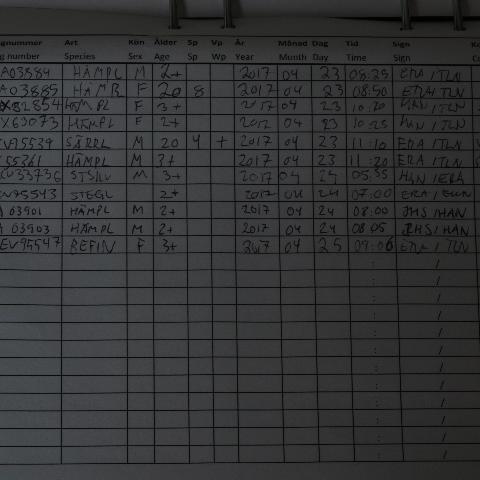 gnummer Art Kön Ålder Sp Vp År Månad Dag Tid Sign
g number Species Sex Age Sp Wp Year Month Day Time Sign
A03884 HÄMPL M 2+ 2017 04 23 08:25 ERA / TLN
A03885 HÄMPL F 20 8 2017 04 23 08:50 ERA / TLN
32854 HÄMPL F 3+ 2017 04 23 10:20 HAN / TLN
X69073 HÄMPL F 2+ 2017 04 23 10:25 HAN / TLN
EV75539 SÄRPL M 20 4 + 2017 04 23 11:10 ERA / TLN
55361 HÄMPL M 3+ 2017 04 23 11:20 ERA / TLN
CU33736 STSKV M 3+ 2017 04 24 05:35 HAN / ERA
EV95543 STEGL 2+ 2017 04 24 07:00 ERA /
03901 HÄMPL M 2+ 2017 04 24 08:00 JHS / HAN
03903 HÄMPL M 2+ 2017 04 24 08:05 JHS / HAN
EV95547 BEFIN F 3+ 2017 04 25 09:06 ERA / TLN